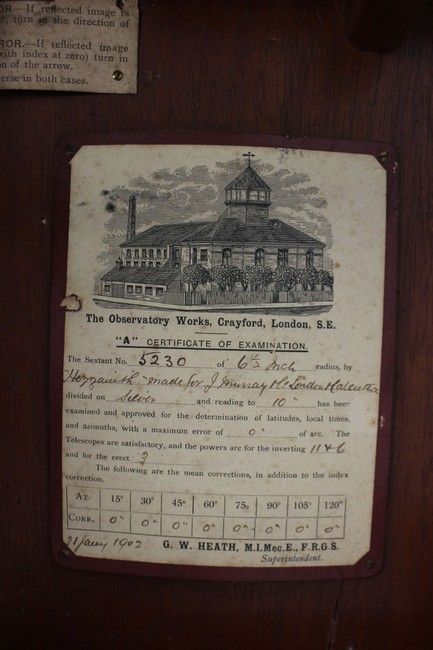 OR.—If reflected image is
, turn in the direction of
ROR.—If reflected image
with index at zero) turn in
on of the arrow.
erse in both cases.
The Observatory Works, Crayford, London, S.E.
"A" CERTIFICATE OF EXAMINATION.
The Sextant No. 5230 of 6½ Inch radius, by
"Hezzanith" made for J. Murray
divided on Silver and reading to 10" has been
examined and approved for the determination of latitudes, local times,
and azimuths, with a maximum error of 0" of arc. The
Telescopes are satisfactory, and the powers are for the inverting 11 & 6
and for the erect 3
The following are the mean corrections, in addition to the index
correction.
AT 15° 30° 45° 60° 75° 90° 105° 120°
CORR. 0" 0" 0" 0" 0" 0" 0" 0"
21 Jany 1902 G. W. HEATH, M.I.Mec.E., F.R.G.S.
Superintendent.